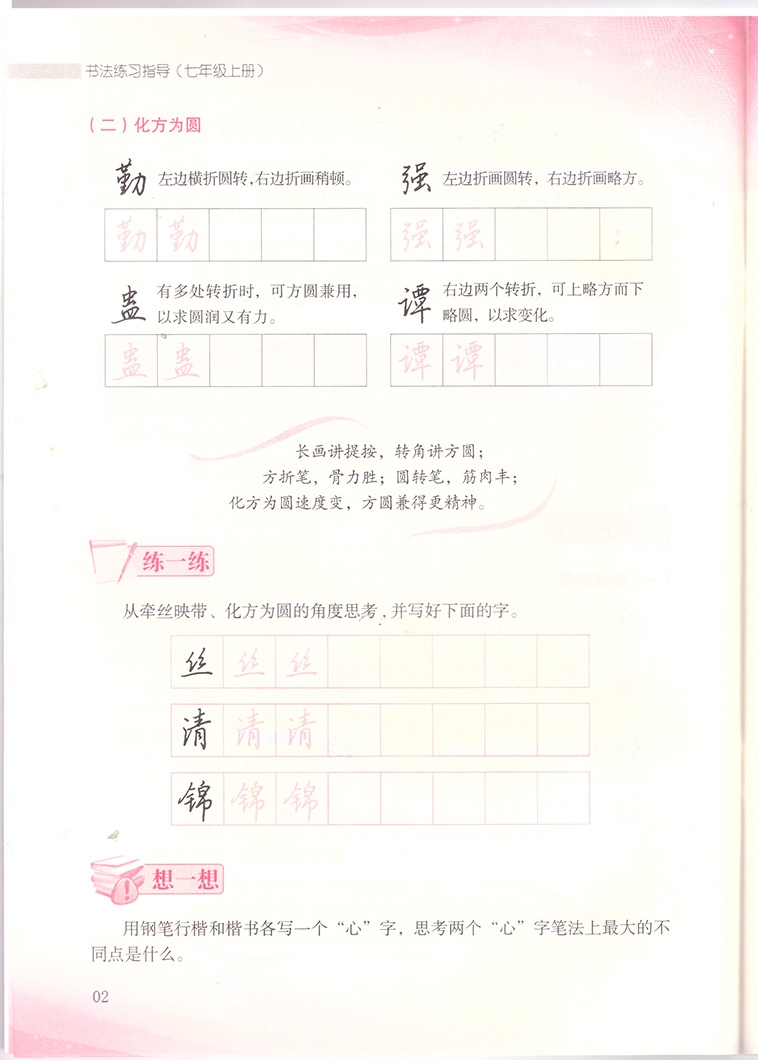 书法练习指导（七年级上册）
（二）化方为圆
勤 左边横折圆转，右边折画稍顿。
强 左边折画圆转，右边折画略方。
勤 勤
强 强
蛊 有多处转折时，可方圆兼用，
以求圆润又有力。
谭 右边两个转折，可上略方而下
略圆，以求变化。
蛊 蛊
谭 谭
长画讲提按，转角讲方圆；
方折笔，骨力胜；圆转笔，筋肉丰；
化方为圆速度变，方圆兼得更精神。
练一练
从牵丝映带、化方为圆的角度思考，并写好下面的字。
丝 丝 丝
清 清 清
锦 锦 锦
想一想
用钢笔行楷和楷书各写一个“心”字，思考两个“心”字笔法上最大的不
同点是什么。
02